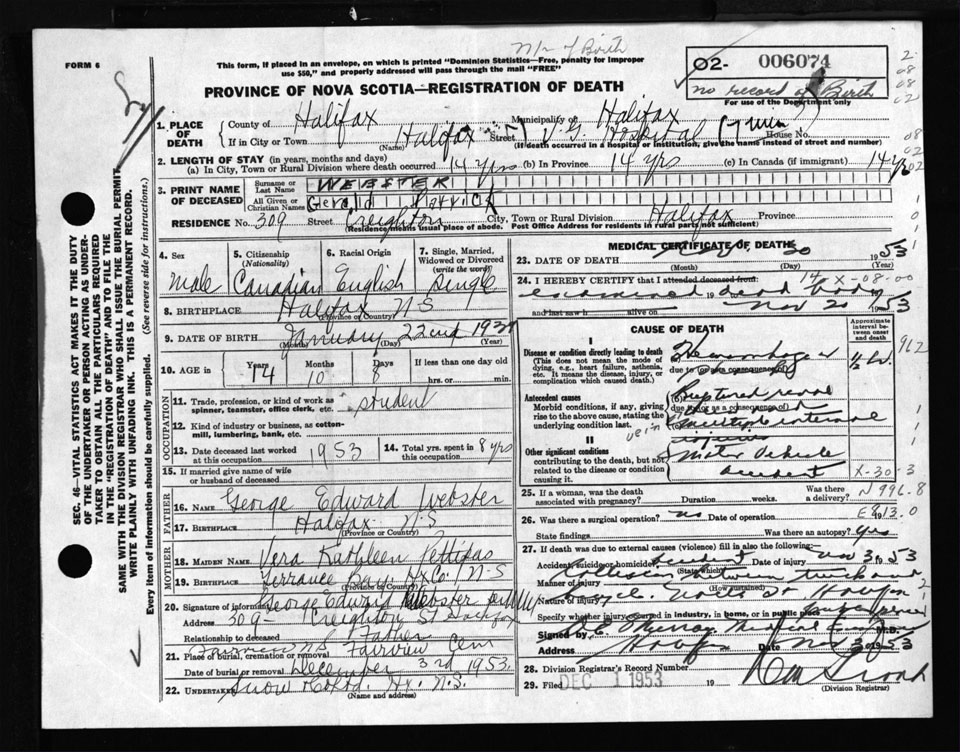 N/r of Birth
FORM 6
This form, if placed in an envelope, on which is printed "Dominion Statistics—Free, penalty for improper
use $50," and properly addressed will pass through the mail "FREE"
02- 006074
no record of Birth
For use of the Department only
PROVINCE OF NOVA SCOTIA—REGISTRATION OF DEATH
1. PLACE OF DEATH
County of Halifax Municipality of Halifax
If in City or Town Halifax Street V.G. Hospital House No.
(Name) (If death occurred in a hospital or institution, give the name instead of street and number)
2. LENGTH OF STAY (in years, months and days)
(a) In City, Town or Rural Division where death occurred 14 yrs (b) In Province 14 yrs (c) In Canada (if immigrant) 14 yrs
3. PRINT NAME OF DECEASED
Surname or Last Name WEBSTER
All Given or Christian Names Gerald Patrick
RESIDENCE No. 309 Street Creighton City, Town or Rural Division Halifax Province
(Residence means usual place of abode. Post Office Address for residents in rural parts not sufficient)
4. Sex Male
5. Citizenship (Nationality) Canadian
6. Racial Origin English
7. Single, Married, Widowed or Divorced (write the word) Single
8. BIRTHPLACE Halifax N.S
(Province or Country)
9. DATE OF BIRTH January 22nd
(Month) (Day) (Year)
10. AGE in Years 14 Months 10 Days 8 If less than one day old hrs. or min.
OCCUPATION
11. Trade, profession or kind of work as spinner, teamster, office clerk, etc. student
12. Kind of industry or business, as cotton-mill, lumbering, bank, etc.
13. Date deceased last worked at this occupation 1953
14. Total yrs. spent in this occupation 8 yrs
15. If married give name of wife or husband of deceased
FATHER
16. NAME George Edward Webster
17. BIRTHPLACE Halifax N.S
(Province or Country)
MOTHER
18. MAIDEN NAME Vera Kathleen Pettipas
19. BIRTHPLACE Terrance Bay Hx Co. N.S
(Province or Country)
20. Signature of informant George Edward Webster
Address 309- Creighton St Halifax
Relationship to deceased Father
21. Place of burial, cremation or removal Fairview Cem
Date of burial or removal December 3rd 1953.
22. UNDERTAKER Snow & Co Ltd. Hx. N.S.
(Name and address)
MEDICAL CERTIFICATE OF DEATH
23. DATE OF DEATH Nov 30 1953
(Month) (Day) (Year)
24. I HEREBY CERTIFY that I attended deceased from: 14 X-08-00
examined dead body
and last saw h alive on 1953
CAUSE OF DEATH
Approximate interval between onset and death
I
Disease or condition directly leading to death
(This does not mean the mode of dying, e.g., heart failure, asthenia, etc. It means the disease, injury, or complication which caused death.)
(a) Haemorrhage
due to (or as a consequence of)
½ hr. 962
Antecedent causes
Morbid conditions, if any, giving rise to the above cause, stating the underlying condition last.
(b) Ruptured renal vein
due to (or as a consequence of)
multiple internal injuries
II
Other significant conditions contributing to the death, but not related to the disease or condition causing it.
Motor Vehicle accident
X-30-3
25. If a woman, was the death associated with pregnancy? Duration weeks. Was there a delivery? N 996.8
26. Was there a surgical operation? no Date of operation E 813.0
State findings Was there an autopsy? Yes
27. If death was due to external causes (violence) fill in also the following:
Accident, suicide or homicide? accident Date of injury Nov 30 1953
(State which)
Manner of injury Collision between truck and
(How sustained)
Nature of injury
Specify whether injury occurred in industry, in home, or in public place
Signed by Murray Medical Examiner M.D.
Address Date Nov 30 1953
28. Division Registrar's Record Number
29. Filed DEC 1 1953 19
(Division Registrar)
SEC. 46—VITAL STATISTICS ACT MAKES IT THE DUTY
OF THE UNDERTAKER OR PERSON ACTING AS UNDER-
TAKER TO OBTAIN ALL THE PARTICULARS REQUIRED
IN THE "REGISTRATION OF DEATH" AND TO FILE THE
SAME WITH THE DIVISION REGISTRAR WHO SHALL ISSUE THE BURIAL PERMIT
WRITE PLAINLY WITH UNFADING INK. THIS IS A PERMANENT RECORD.
Every item of information should be carefully supplied. (See reverse side for instructions.)